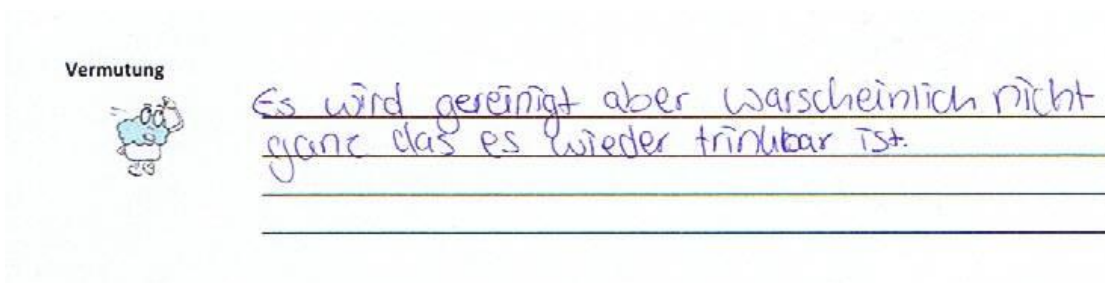 Vermutung
Es wird gereinigt aber warscheinlich nicht
ganz das es wieder trinkbar ist.